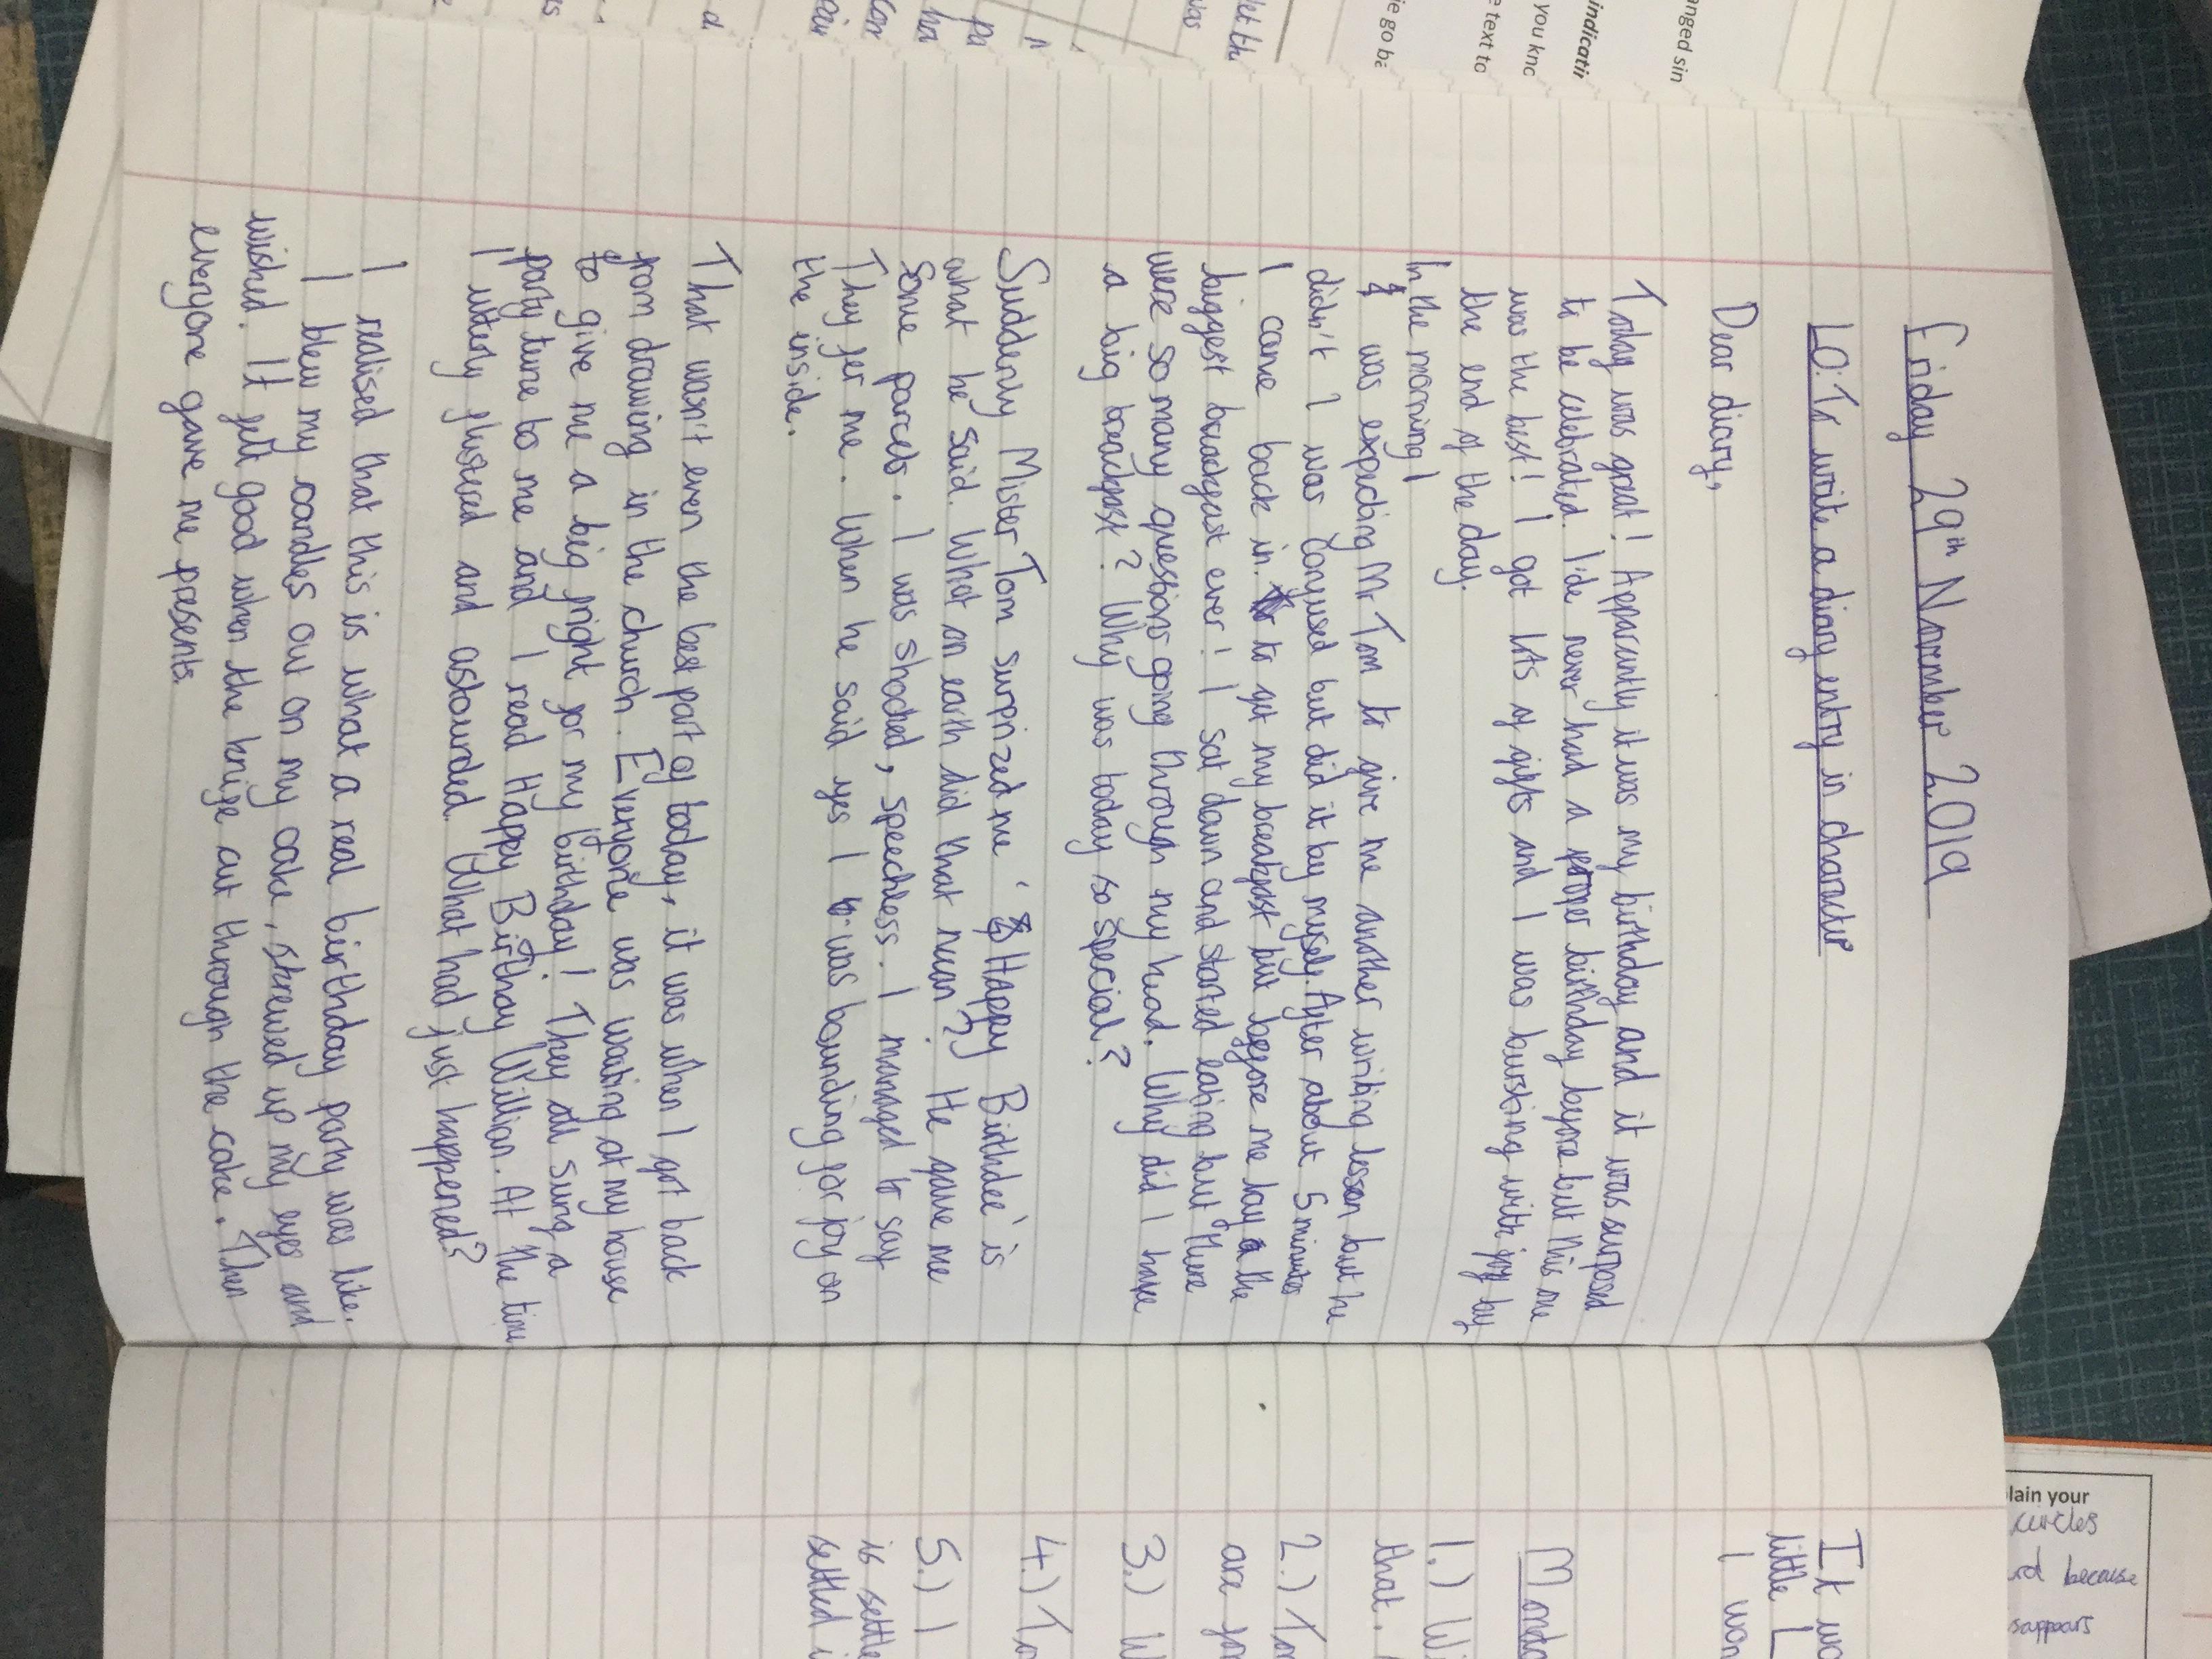 Friday 29th November 2019
LO: To write a diary entry in character
Dear diary,
Today was great! Apparantly it was my birthday and it was surposed
to be celebrated. I'de never had a proper birthday before but this one
was the best! I got lots of gifts and I was bursting with joy by
the end of the day.
In the morning I
was expecting Mr Tom to give me another writing lesson but he
didn't I was confused but did it by myself. After about 5 minutes
I came back in to get my breakfast but before me lay the
biggest breackfast ever! I sat down and started eating but there
were so many questions going through my head. Why did I have
a big breackfast? Why was today so special?
Suddenly Mister Tom surprized me 'Happy Birthdee' is
what he said. What on earth did that mean? He gave me
some parcels. I was shocked, speechless. I managed to say
They fer me. When he said yes I was bounding for joy on
the inside.
That wasn't even the best part of today, it was when I got back
from drawing in the church. Everyone was waiting at my house
to give me a big fright for my birthday! They all sung a
party tune to me and I read Happy Birthay Willian. At the time
I utterly flustered and astounded. What had just happened?
I realised that this is what a real birthday party was like.
I blew my candles out on my cake, shrewed up my eyes and
wished. It felt good when the knife cut through the cake. Then
everyone gave me presents.
It wa
little
I wan
Monda
1.) Wi
that.
2.) Tom
are
3.) W
4.) To
5.) I
is settle
settled i
anged sin
indicatin
you knc
e text to
ie go ba
lain your
circles
because
sappears